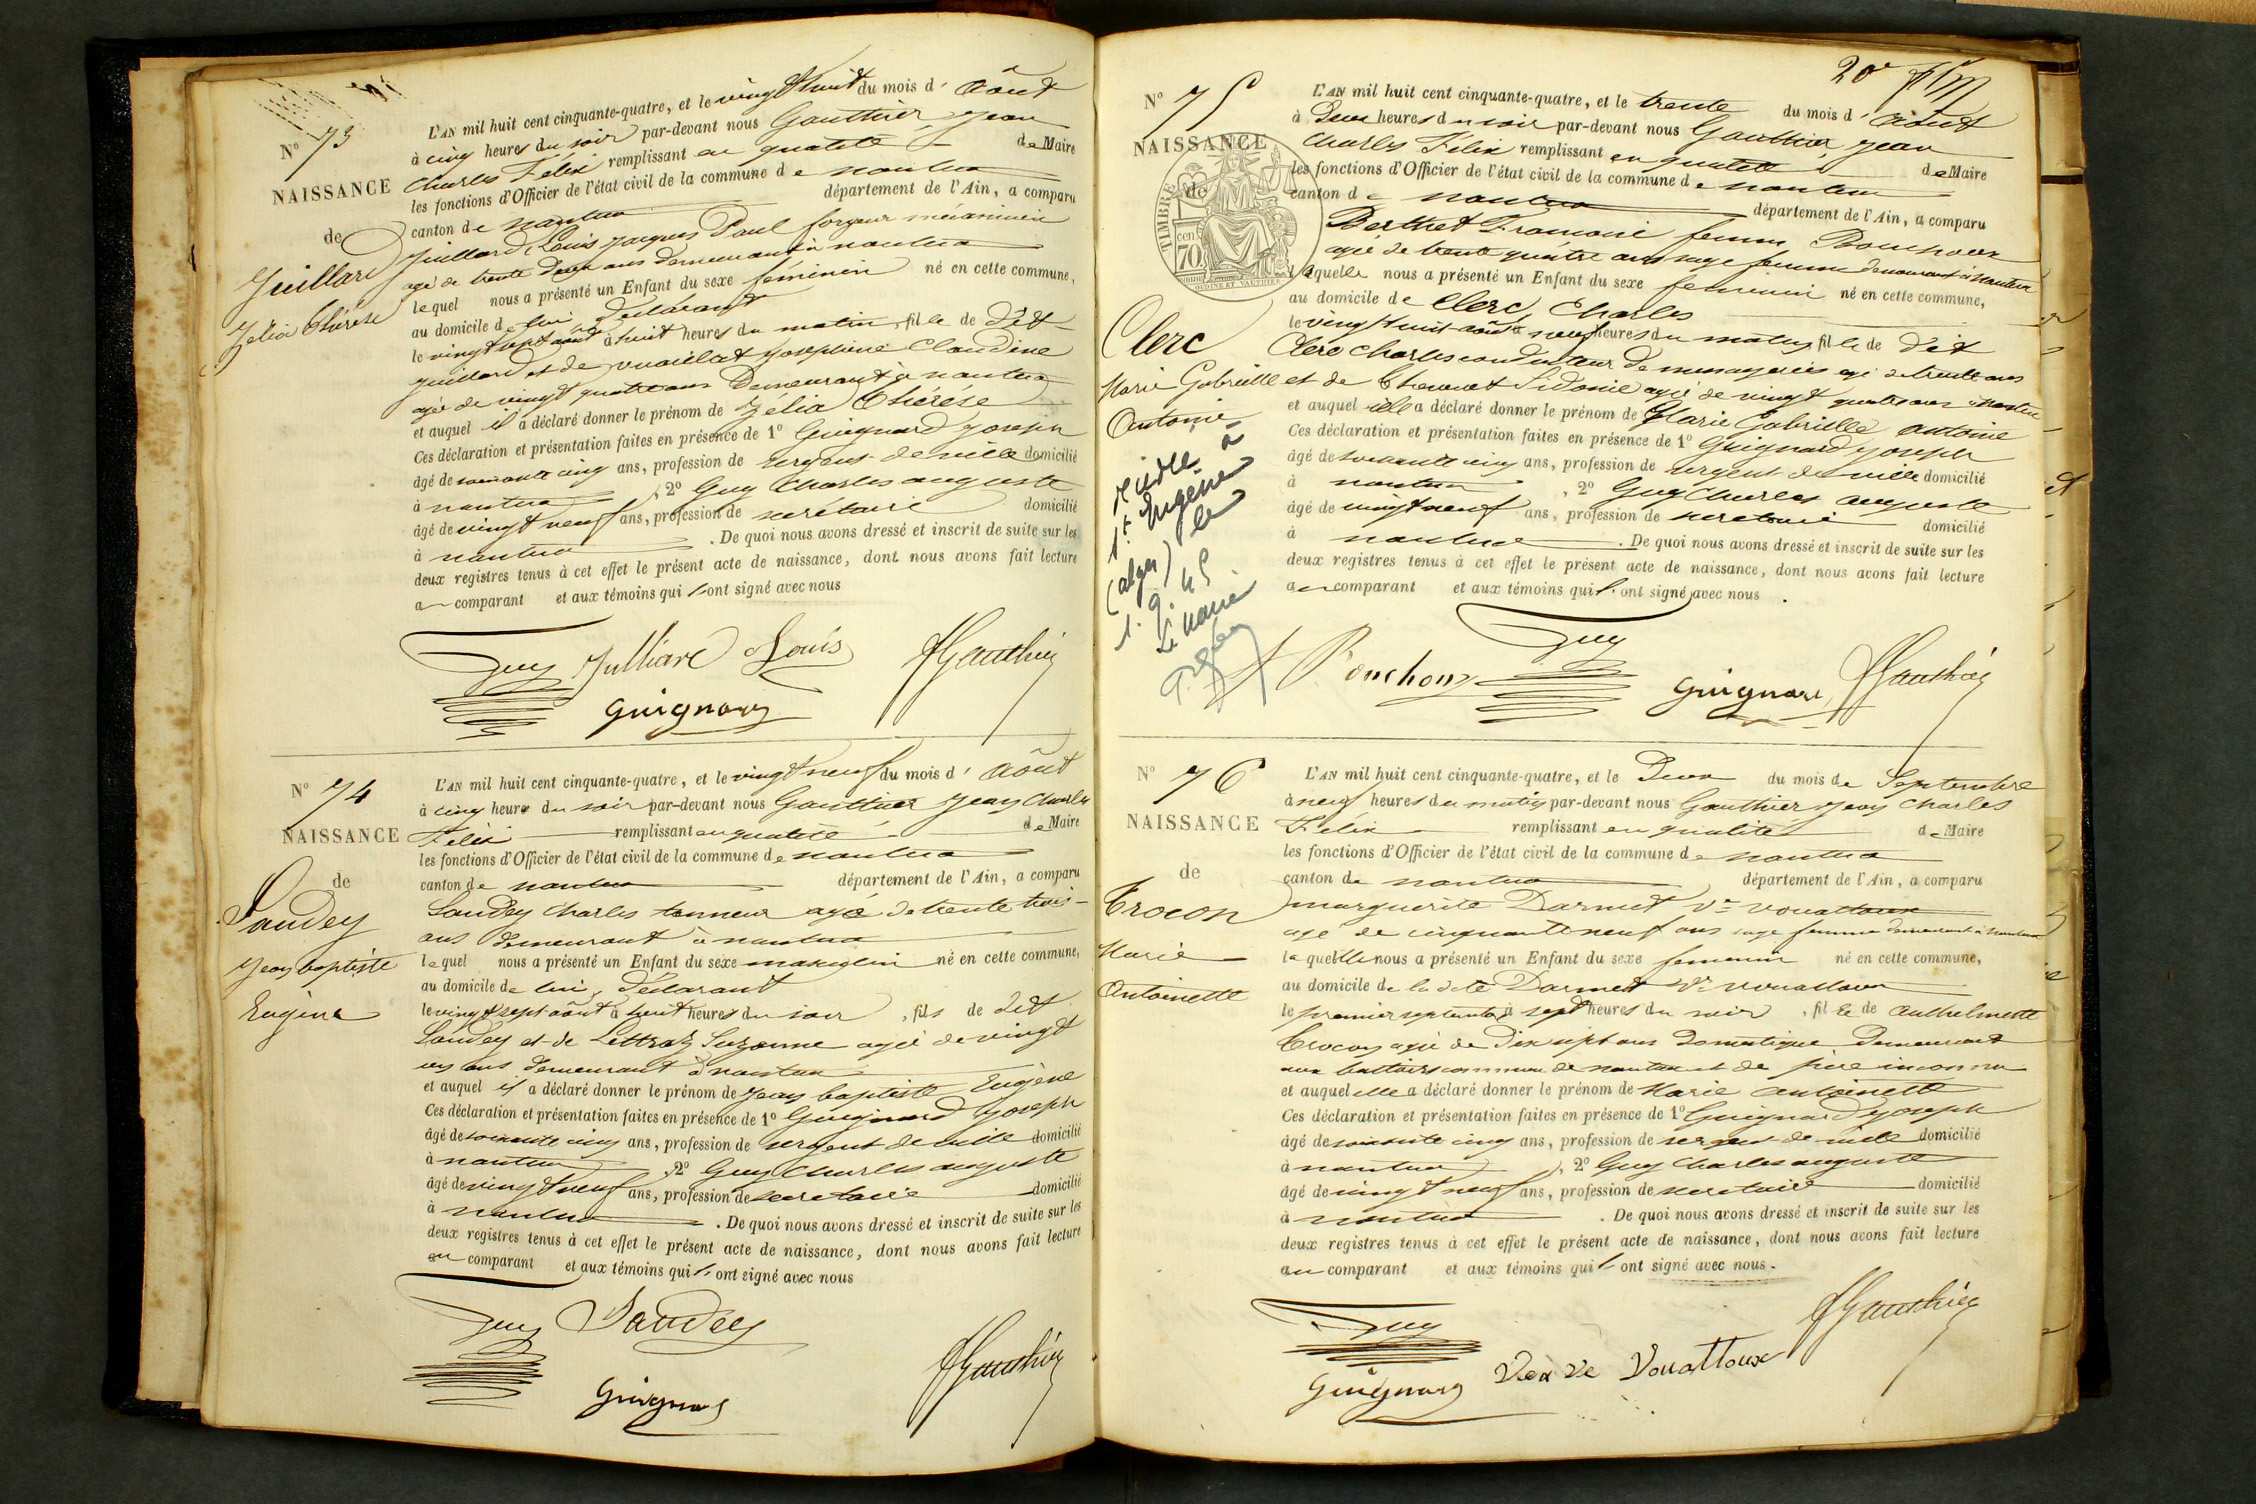 N° 73
NAISSANCE
de
Juillard
Zélia Thérèse
L'AN mil huit cent cinquante-quatre, et le vingt huit du mois d' Août
à cinq heures du soir par-devant nous Gauthier Jean
Charles Félix remplissant en qualité de Maire
les fonctions d'Officier de l'état civil de la commune de nantua
canton de nantua département de l'Ain, a comparu
Juillard Louis Jacques Paul forgeur mécanicien
agé de trente deux ans demeurant à nantua
lequel nous a présenté un Enfant du sexe féminin né en cette commune,
au domicile de lui déclarant
le vingt sept août à huit heures du matin, fille de dit
Juillard et de Josephine Claudine
agée de vingt quatre ans demeurant à nantua
et auquel il a déclaré donner le prénom de Zélia Thérèse
Ces déclaration et présentation faites en présence de 1° Guignard Joseph
âgé de soixante cinq ans, profession de sergent de ville domicilié
à nantua, 2° Guy Charles auguste
âgé de vingt neuf ans, profession de secrétaire domicilié
à nantua. De quoi nous avons dressé et inscrit de suite sur les
deux registres tenus à cet effet le présent acte de naissance, dont nous avons fait lecture
au comparant et aux témoins qui l'ont signé avec nous
Guy Julliard Louis Gauthier
Guignard
N° 74
NAISSANCE
de
Landey
Jean baptiste
Eugène
L'AN mil huit cent cinquante-quatre, et le vingt neuf du mois d' Août
à cinq heures du soir par-devant nous Gauthier Jean Charles
Félix remplissant en qualité de Maire
les fonctions d'Officier de l'état civil de la commune de nantua
canton de nantua département de l'Ain, a comparu
Landey Charles tanneur agé de trente trois
ans demeurant à nantua
lequel nous a présenté un Enfant du sexe masculin né en cette commune,
au domicile de lui, déclarant
le vingt sept août à huit heures du soir, fils de dit
Landey et de Lettraz Suzanne agée de vingt
ans demeurant à nantua
et auquel il a déclaré donner le prénom de Jean baptiste Eugène
Ces déclaration et présentation faites en présence de 1° Guignard Joseph
âgé de soixante cinq ans, profession de sergent de ville domicilié
à nantua, 2° Guy Charles auguste
âgé de vingt neuf ans, profession de secretaire domicilié
à nantua. De quoi nous avons dressé et inscrit de suite sur les
deux registres tenus à cet effet le présent acte de naissance, dont nous avons fait lecture
au comparant et aux témoins qui l'ont signé avec nous
Guy Landey Gauthier
Guignard
20
N° 75
NAISSANCE
de
TIMBRE
cen 70
Clerc
Marie Gabrielle
Antoine
décédée à
St Eugène
(alger) le
1.9.45
Le Maire
L'AN mil huit cent cinquante-quatre, et le trente du mois d' Août
à Deux heures du soir par-devant nous Gauthier Jean
Charles Félix remplissant en qualité de Maire
les fonctions d'Officier de l'état civil de la commune de nantua
canton de nantua département de l'Ain, a comparu
Berthet Françoise femme Bouchoux
agée de trente quatre ans sage femme demeurant à nantua
laquelle nous a présenté un Enfant du sexe feminin né en cette commune,
au domicile de Clerc, Charles
le vingt huit août à neuf heures du matin, fille de dit
Clerc Charles conducteur de messageries agé de trente ans
et de Sidonie agée de vingt quatre ans à Nantua
et auquel elle a déclaré donner le prénom de Marie Gabrielle antoine
Ces déclaration et présentation faites en présence de 1° Guignard Joseph
âgé de soixante cinq ans, profession de sergent de ville domicilié
à nantua, 2° Guy Charles auguste
âgé de vingt neuf ans, profession de secretaire domicilié
à nantua. De quoi nous avons dressé et inscrit de suite sur les
deux registres tenus à cet effet le présent acte de naissance, dont nous avons fait lecture
au comparant et aux témoins qui l'ont signé avec nous.
f Bouchoux Guy Guignard Gauthier
N° 76
NAISSANCE
de
Crocon
Marie
Antoinette
L'AN mil huit cent cinquante-quatre, et le Deux du mois de Septembre
à neuf heures du matin par-devant nous Gauthier Jean Charles
Félix remplissant en qualité de Maire
les fonctions d'Officier de l'état civil de la commune de nantua
canton de nantua département de l'Ain, a comparu
marguerite Darmet Ve vouattoux
agé de cinquante neuf ans sage femme demeurant à Nantua
laquelle nous a présenté un Enfant du sexe feminin né en cette commune,
au domicile de la dite Darmet Ve vouattoux
le premier septembre à sept heures du soir, fille de Anthelmette
Crocon agée de Dix sept ans domestique Demeurant
aux battoirs commune de nantua et de père inconnu
et auquel elle a déclaré donner le prénom de Marie antoinette
Ces déclaration et présentation faites en présence de 1° Guignard Joseph
âgé de soixante cinq ans, profession de sergent de ville domicilié
à nantua, 2° Guy Charles auguste
âgé de vingt neuf ans, profession de secretaire domicilié
à nantua. De quoi nous avons dressé et inscrit de suite sur les
deux registres tenus à cet effet le présent acte de naissance, dont nous avons fait lecture
au comparant et aux témoins qui l'ont signé avec nous.
Guy Gauthier
Guignard Veuve Vouattoux